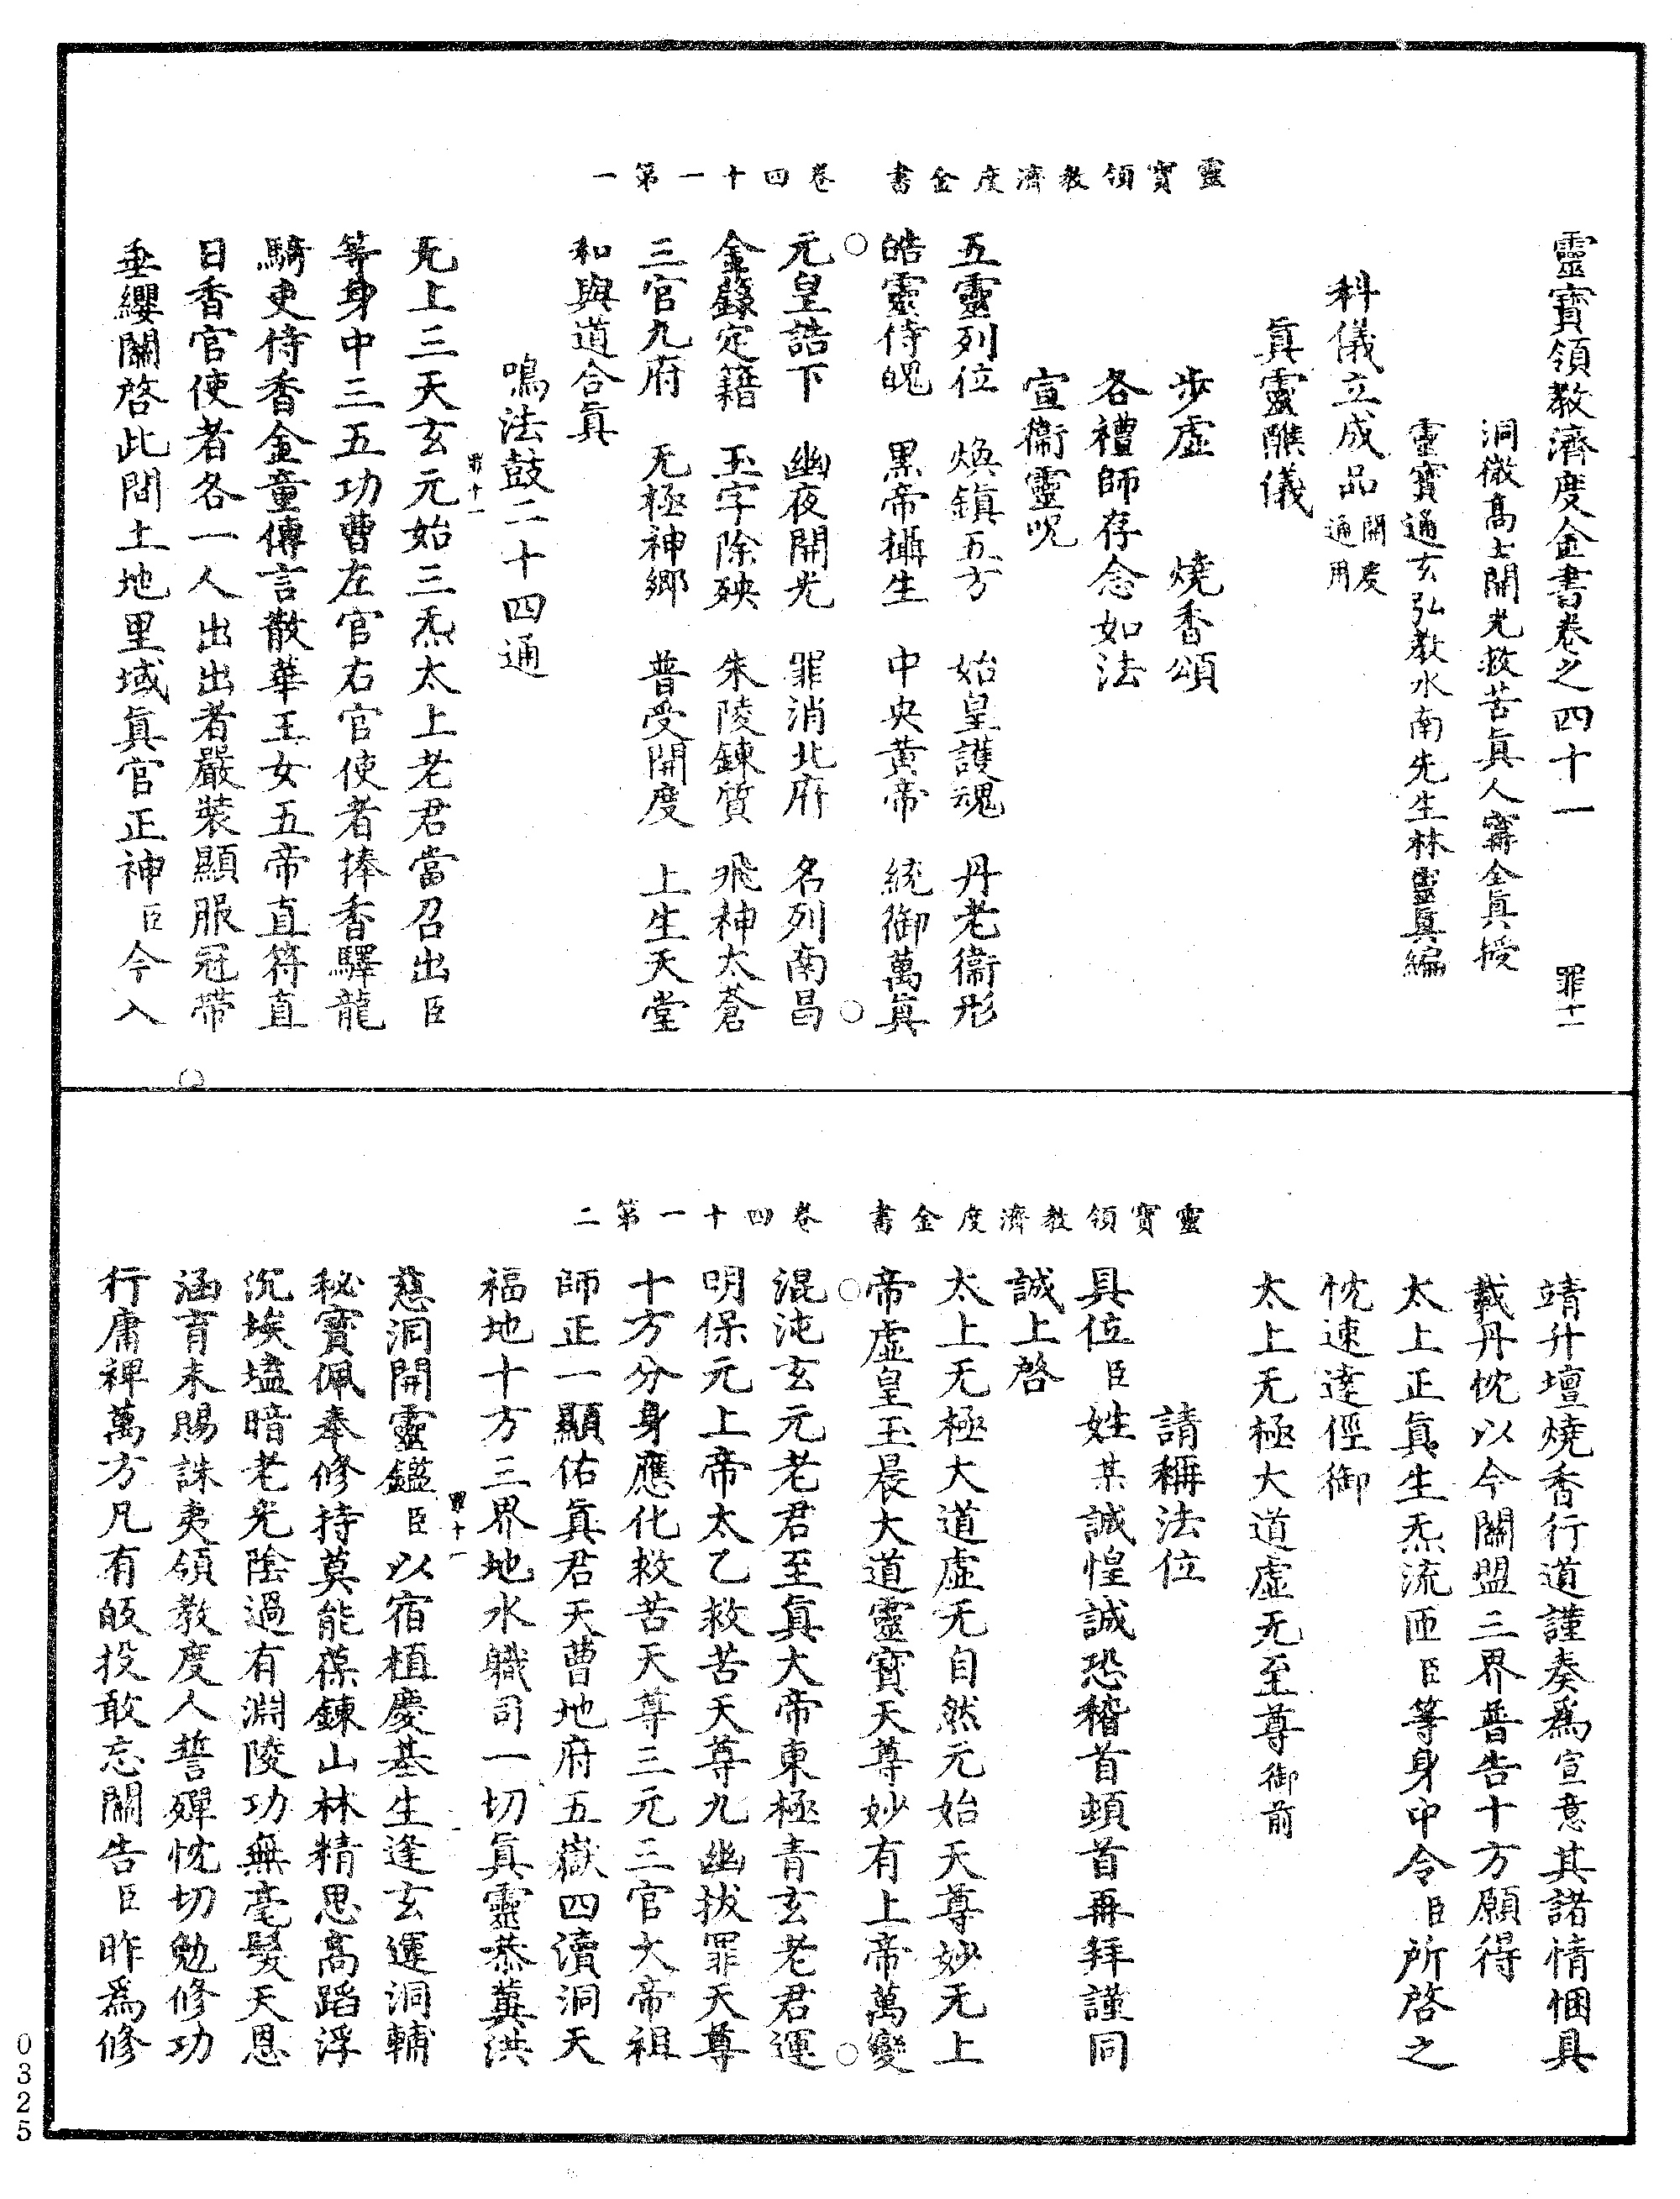 靈寶領教濟度金書　卷四十一第一
靈寶領教濟度金書卷之四十一　罪十一
洞微高士開光救苦眞人甯全眞授
靈寶通玄弘教水南先生林靈眞編
科儀立成品開度通用
眞靈醮儀
步虛　燒香頌
各禮師存念如法
宣衞靈呪
五靈列位　煥鎮五方　始皇護魂　丹老衞形
皓靈侍魄　黑帝攝生　中央黃帝　統御萬眞
元皇誥下　幽夜開光　罪消北府　名列南昌
金籙定籍　玉字除殃　朱陵鍊質　飛神太蒼
三官九府　无極神鄉　普受開度　上生天堂
和與道合眞
鳴法鼓二十四通
罪十一
无上三天玄元始三炁太上老君當召出臣
等身中三五功曹左官右官使者捧香驛龍
騎吏侍香金童傳言散華玉女五帝直符直
日香官使者各一人出出者嚴裝顯服冠帶
垂纓關啓此間土地里域眞官正神臣今入
靈寶領教濟度金書　卷四十一第二
靖升壇燒香行道謹奏爲宣意其諸情悃具
載丹忱以今關盟三界普告十方願得
太上正眞生炁流匝臣等身中令臣所啓之
忱速達徑御
太上无極大道虛无至尊御前
請稱法位
具位臣姓某誠惶誠恐稽首頓首再拜謹同
誠上啓
太上无極大道虛无自然元始天尊妙无上
帝虛皇玉晨大道靈寶天尊妙有上帝萬變
混沌玄元老君至眞大帝東極青玄老君運
明保元上帝太乙救苦天尊九幽拔罪天尊
十方分身應化救苦天尊三元三官大帝祖
師正一顯佑眞君天曹地府五嶽四瀆洞天
福地十方三界地水職司一切眞靈恭冀洪
罪十一
慈洞開靈鑑臣以宿植慶基生逢玄運洞輔
秘寶佩奉修持莫能葆鍊山林精思高蹈浮
沉埃壒暗老光陰過有淵陵功無毫髮天恩
涵育未賜誅夷領教度人誓殫忱切勉修功
行庸裨萬方凡有皈投敢忘關告臣昨爲修
0325